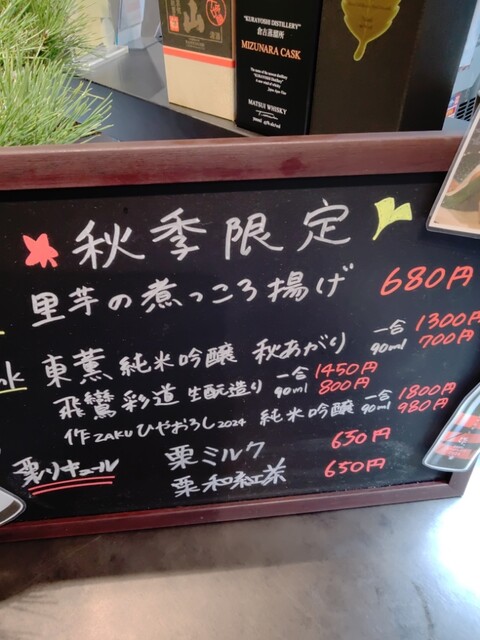 "KURAYOSHI DISTILLERY"
倉吉蒸留所
MIZUNARA CASK
MATSUI WHISKY
秋季限定
里芋の煮っころ揚げ 680円
東薫 純米吟醸 秋あがり 一合 1300円
90ml 700円
飛鸞 彩道 生酛造り 一合 1450円
90ml 800円
作 ZAKU ひやおろし 2024 純米吟醸 一合 1800円
90ml 980円
栗リキュール
栗ミルク 630円
栗和紅茶 650円